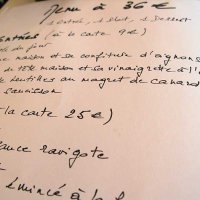 Menu à 36€
1 entrée, 1 plat, 1 dessert
Entrées (à la carte 9€)
du jour
maison et sa confiture d'oignons
de tête maison et sa vinaigrette à l'
de lentilles au magret de canard
saucisson
la carte 25€)
sauce ravigote
émincé à la